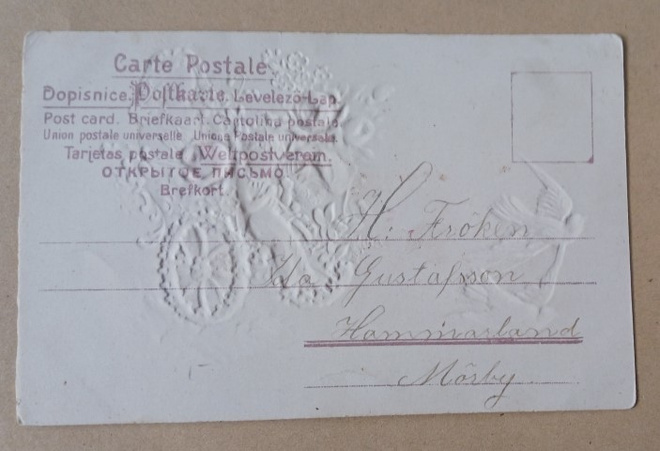 Carte Postale
Dopisnice. Postkarte. Levelező-Lap.
Post card. Briefkaart. Cartolina postale.
Union postale universelle. Unione Postale universale.
Tarjetas postale. Weltpostverein.
ОТКРЫТОЕ ПИСЬМО.
Brefkort.
H. Fröken
Ida Gustafsson
Hammarland
Mörby